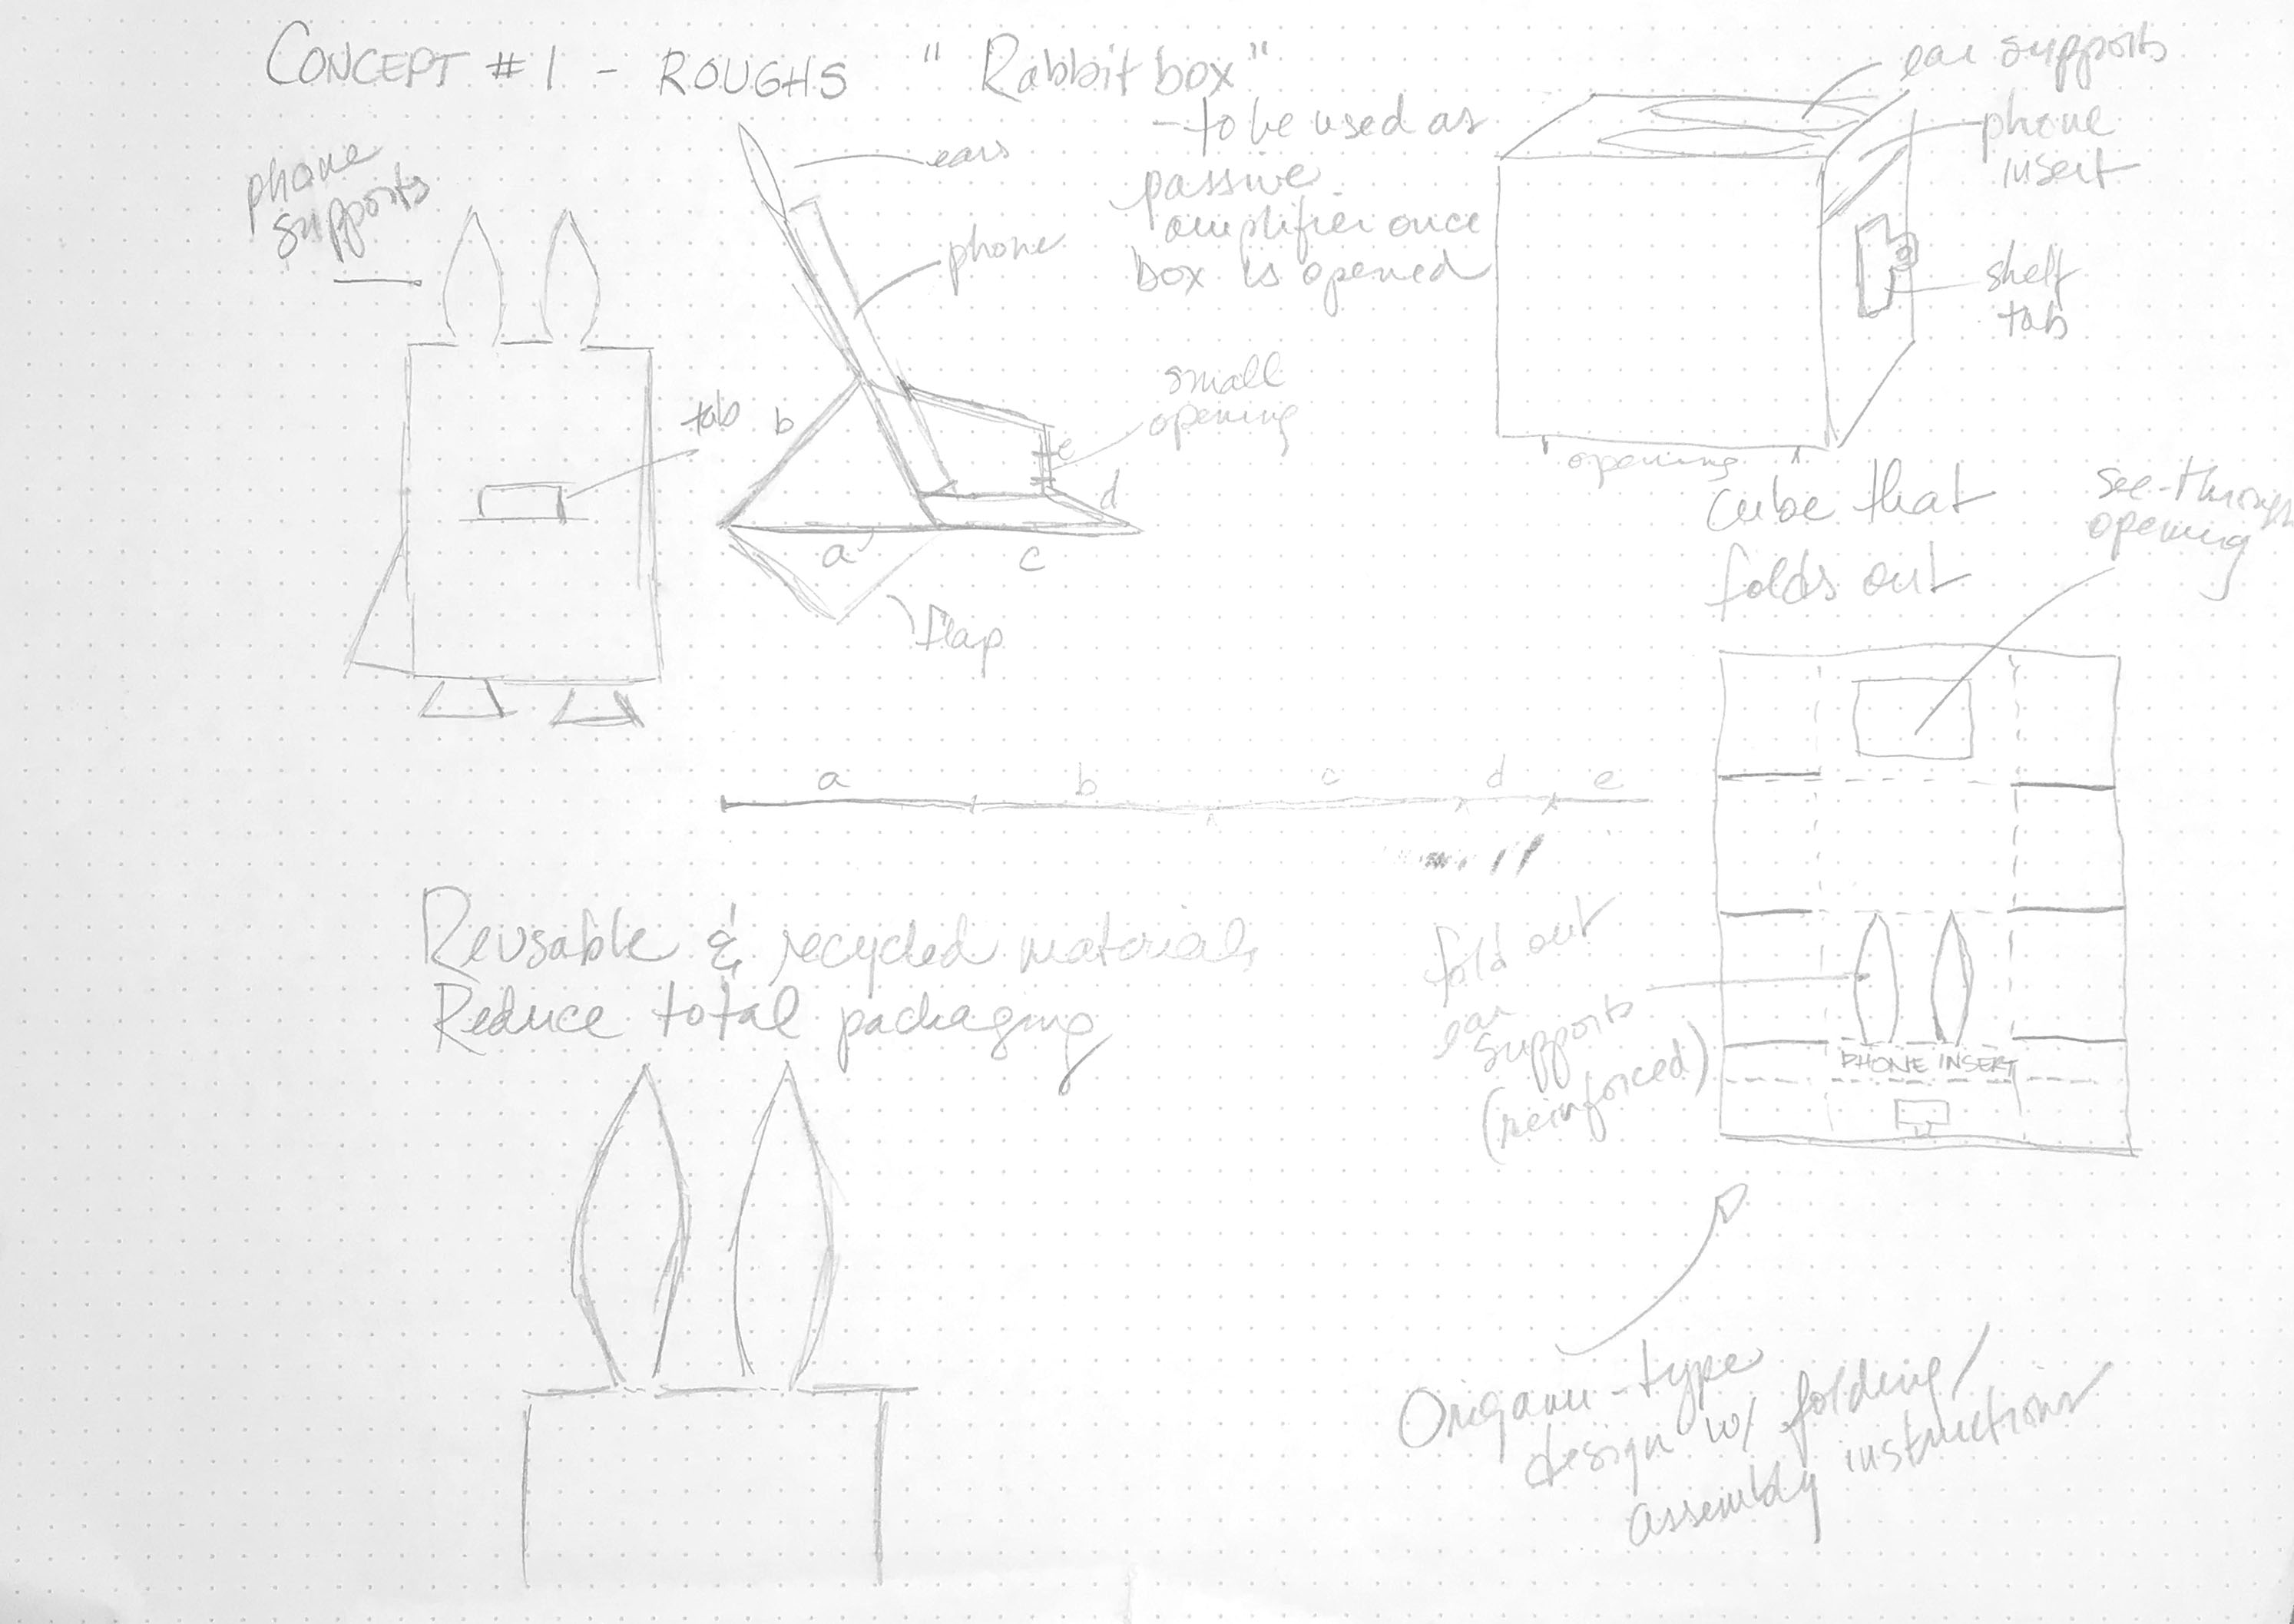 CONCEPT #1 - ROUGHS "Rabbit box"
- to be used as
passive
amplifier once
box is opened
phone
supports
tab
ears
phone
small
opening
b
e
d
a
c
flap
ear supports
phone
insert
shelf
tab
opening
cube that
folds out
see-through
opening
a b c d e
Reusable & recycled materials
Reduce total packaging
fold out
ear
supports
(reinforced)
PHONE INSERT
Origami-type
design w/ folding/
assembly instructions